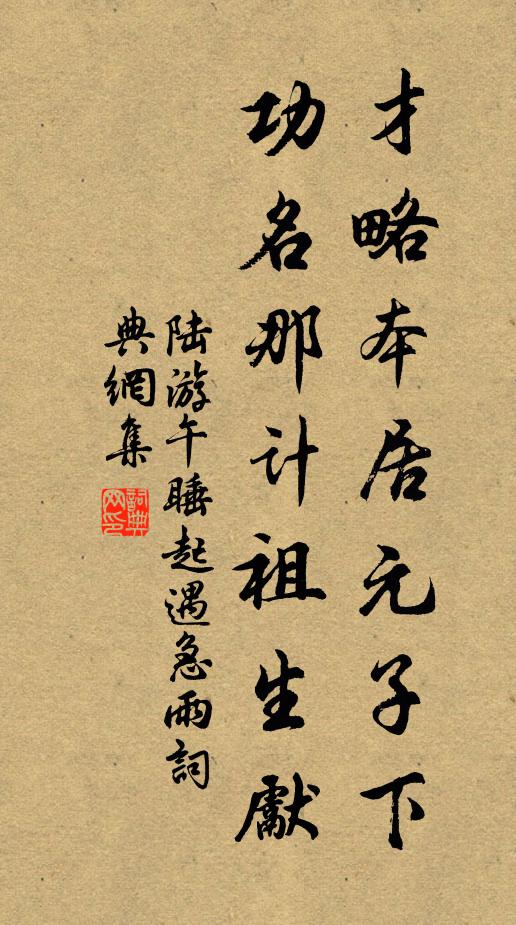 才略本居元子下
功名那計祖生獻
陆游午睡起遇急雨詞
典網集
詞典
网印